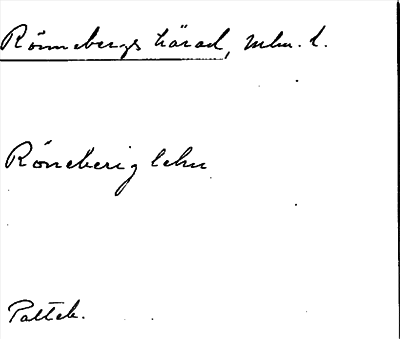 Rönnebergs härad, Mlm. l.
Röneberig lehn
Pattek.